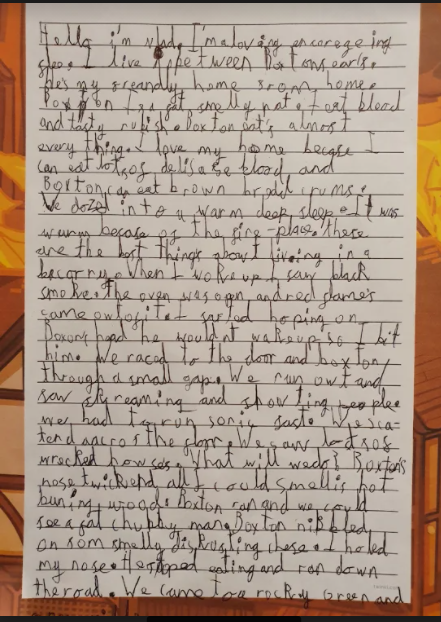 Hello i'm I'm a loving encoregeing
I live between Boxtons ears.
He's my greandly home srom home.
Boxton is a fat smelly rat. I eat blood
and tasty rubish. Boxton eat's almost
every thing. I love my home becase I
can eat lotsos delisase blood and
Boxton can eat brown bredd crums.
We dozed into a warm deep sleep. It was
warm becase os the sire-place. these
are the best things about liveing in a
bacarry. When I woke up I saw black
smoke. the oven was open and red flame's
came owt os it. I sarted hoping on
Boxons head he wouldnt wake up so I bit
him. We raced to the door and boxton
through a small gap. We run owt and
saw skreaming and showting people
we had to run sonic sast. We sca-
terd across the floor. We saw lots os
wrecked howses. What will we do? Boxton's
nose twickend all I could smell is hot
buning wood. Boxton ran and we could
see a fat chubby man. Boxton nibbled
on som smelly diskusting chese. I holed
my nose. He stopped eating and ran down
the road. We came to a rockry green and